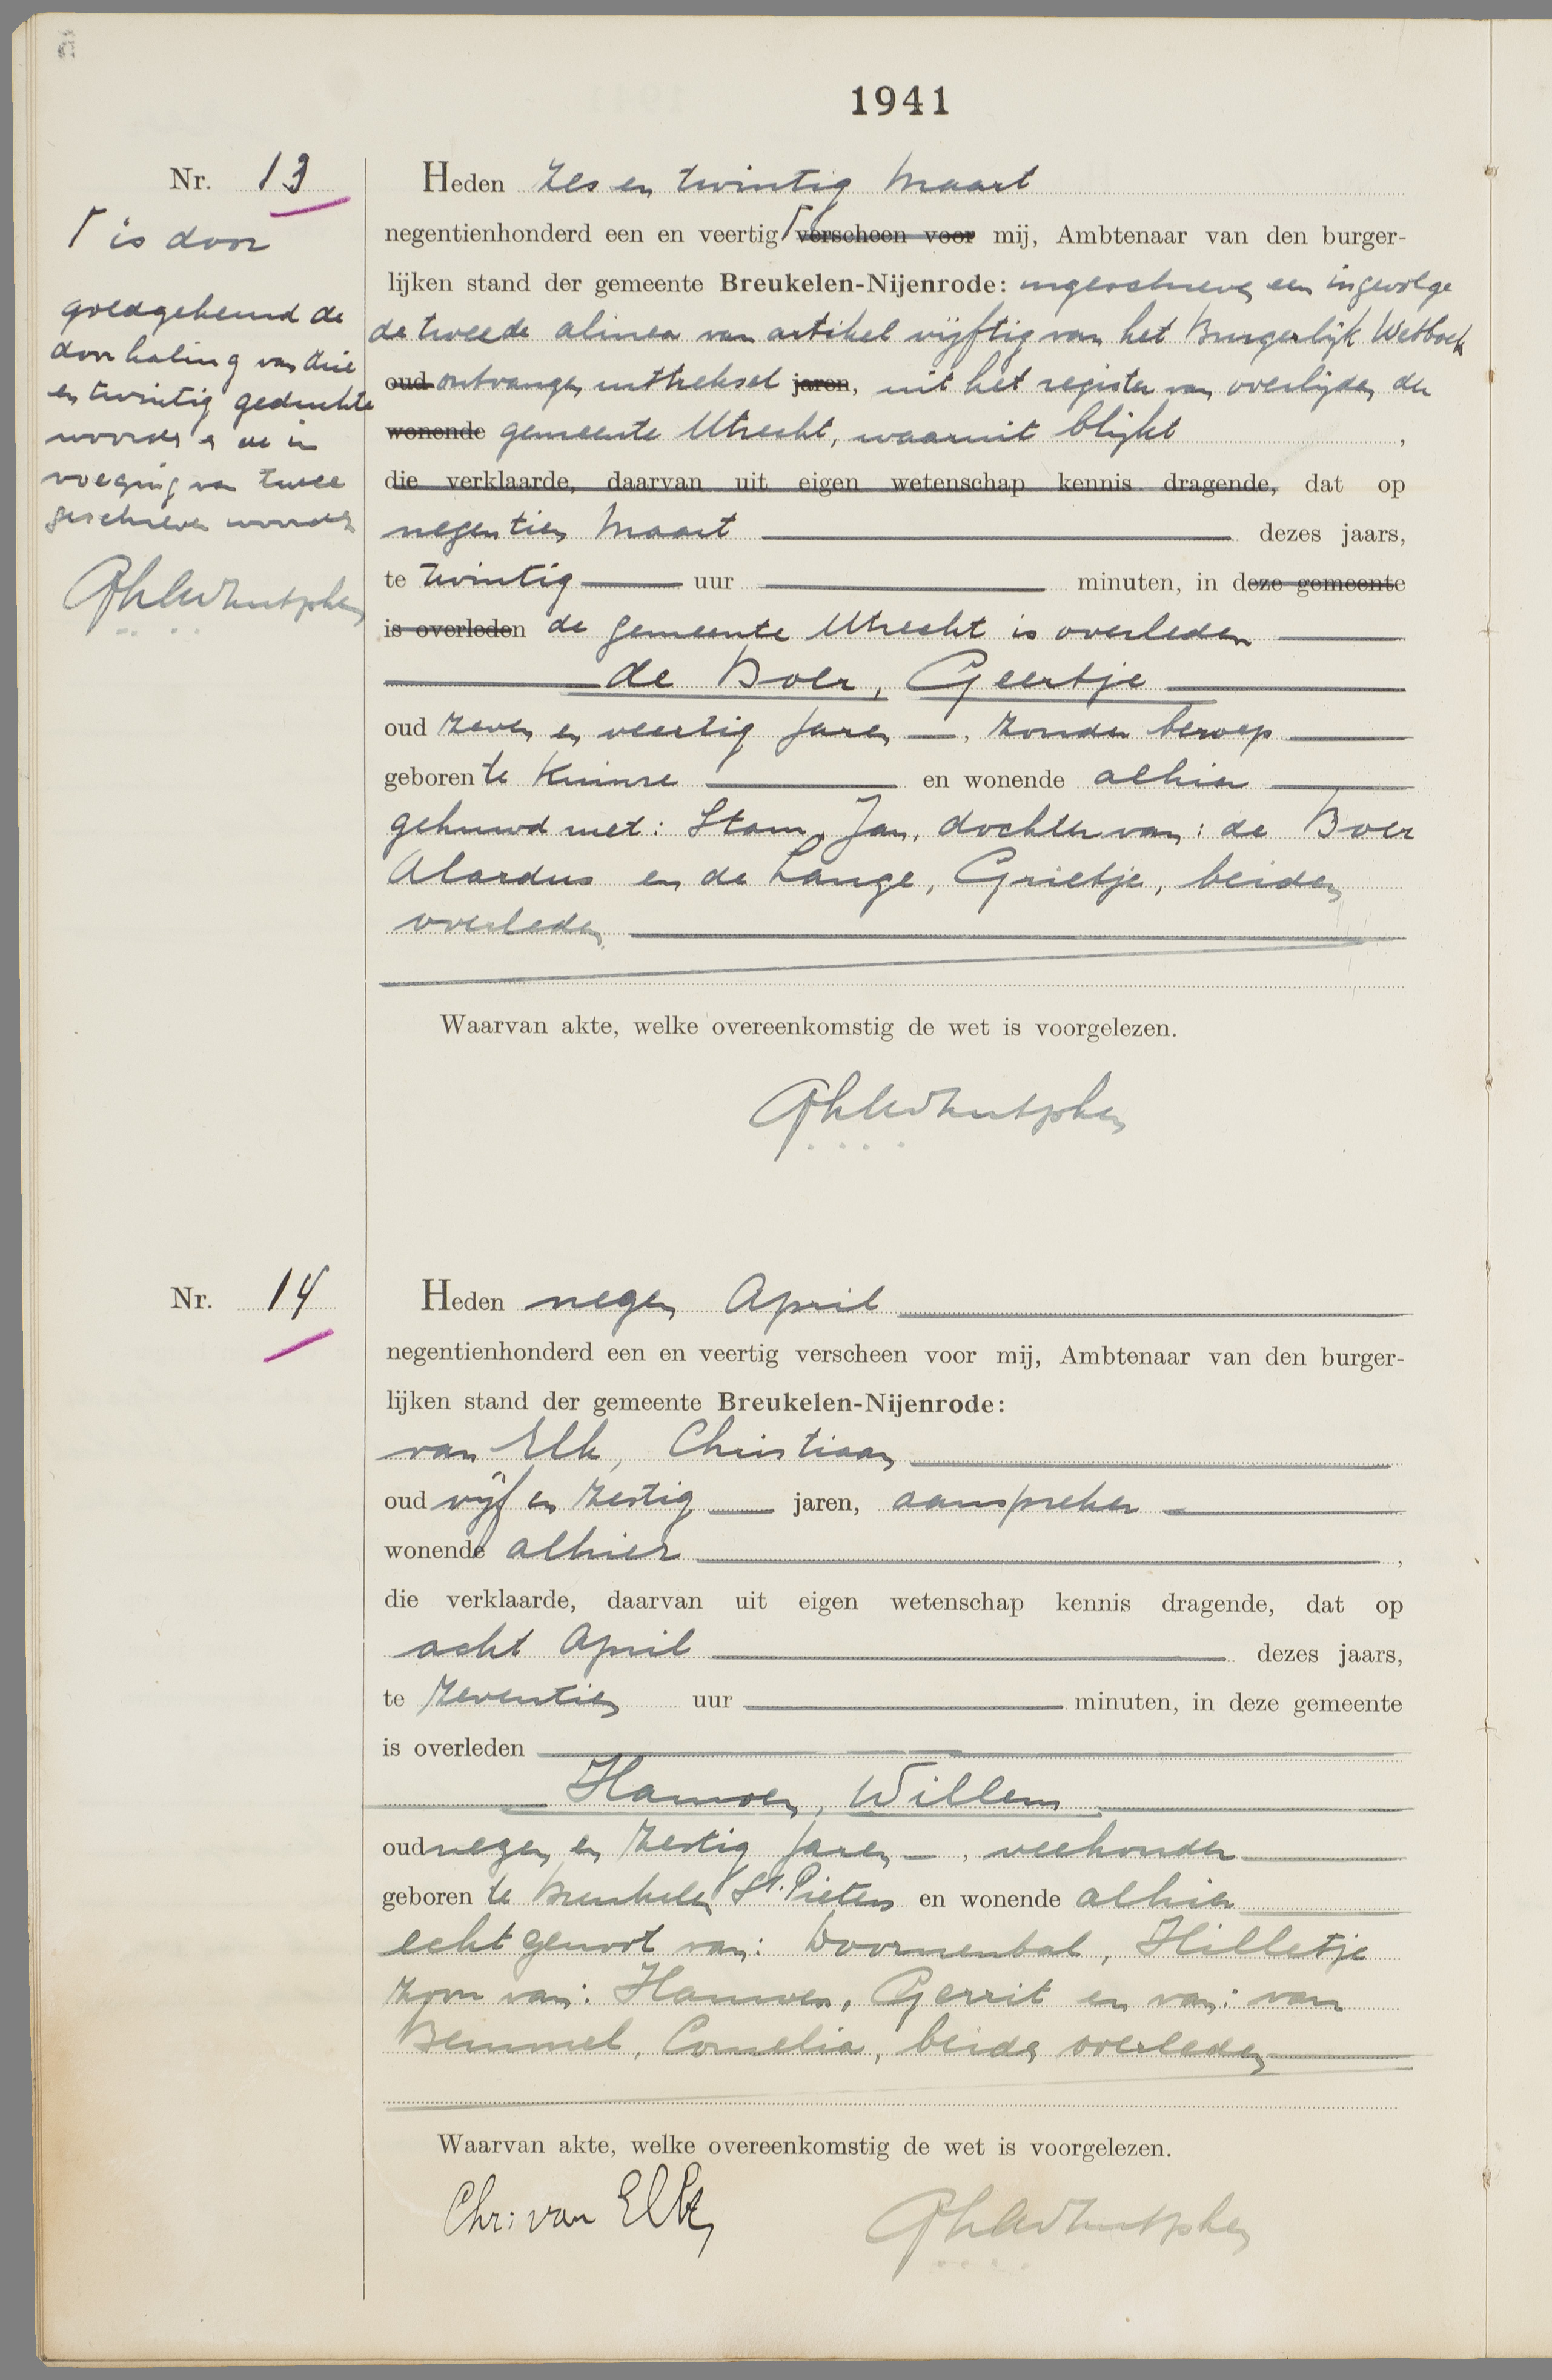 1941
Nr. 13
Heden zes en twintig Maart
negentienhonderd een en veertig ⌈ verscheen voor mij, Ambtenaar van den burger-
lijken stand der gemeente Breukelen-Nijenrode: ingeschreven een ingevolge
de tweede alinea van artikel vijftig van het Burgerlijk Wetboek
oud ontvangen uittreksel jaren, uit het register van overlijden der
wonende gemeente Utrecht, waaruit blijkt ,
die verklaarde, daarvan uit eigen wetenschap kennis dragende, dat op
negentien Maart dezes jaars,
te twintig uur minuten, in deze gemeente
is overleden de gemeente Utrecht is overleden
de Boer, Geertje
oud zeven en veertig jaren, zonder beroep
geboren te Kuinre en wonende alhier
gehuwd met: Stam, Jan, dochter van: de Boer
Alardus en de Lange, Grietje, beiden
overleden
Waarvan akte, welke overeenkomstig de wet is voorgelezen.
⌈ is door
goedgekeurd de
doorhaling van drie
en twintig gedrukte
woorden en de in
voeging van twee
geschreven woorden
Nr. 14
Heden negen April
negentienhonderd een en veertig verscheen voor mij, Ambtenaar van den burger-
lijken stand der gemeente Breukelen-Nijenrode:
van Elk, Christiaan
oud vijf en zestig jaren, aanspreker
wonende alhier ,
die verklaarde, daarvan uit eigen wetenschap kennis dragende, dat op
acht April dezes jaars,
te zeventien uur minuten, in deze gemeente
is overleden
Hamoen, Willem
oud negen en zestig jaren, veehouder
geboren te Breukelen St. Pieters en wonende alhier
echtgenoot van: Doornenbal, Hilletje
zoon van: Hamoen, Gerrit en van: van
Bemmel, Cornelia, beiden overleden
Waarvan akte, welke overeenkomstig de wet is voorgelezen.
Chr: van Elk